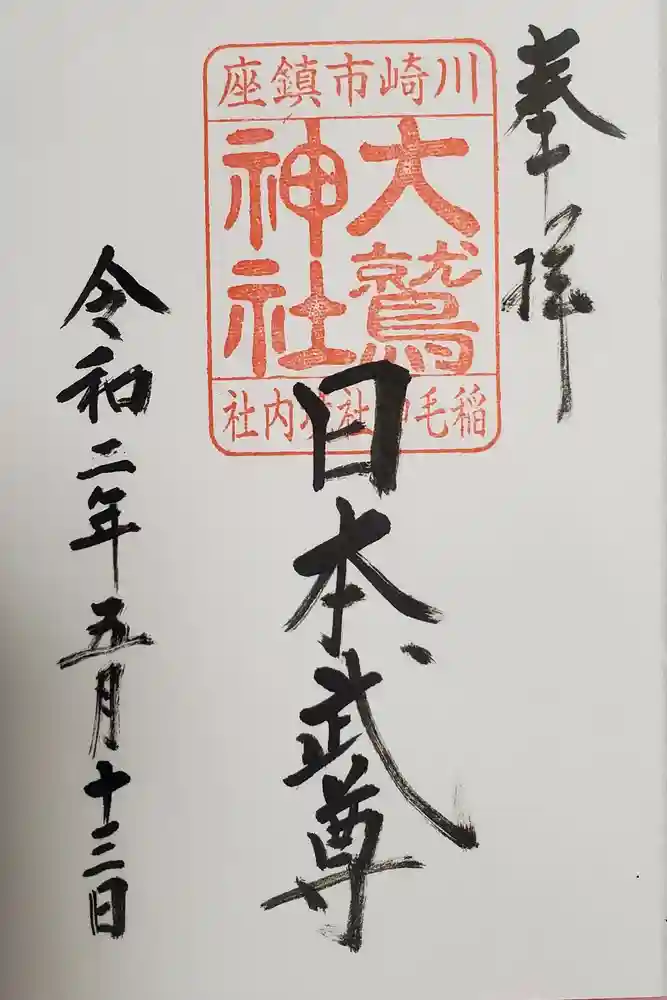 奉拝
川崎市鎮座
大鷲
神社
稲毛神社境内社
日本武尊
令和二年五月十三日